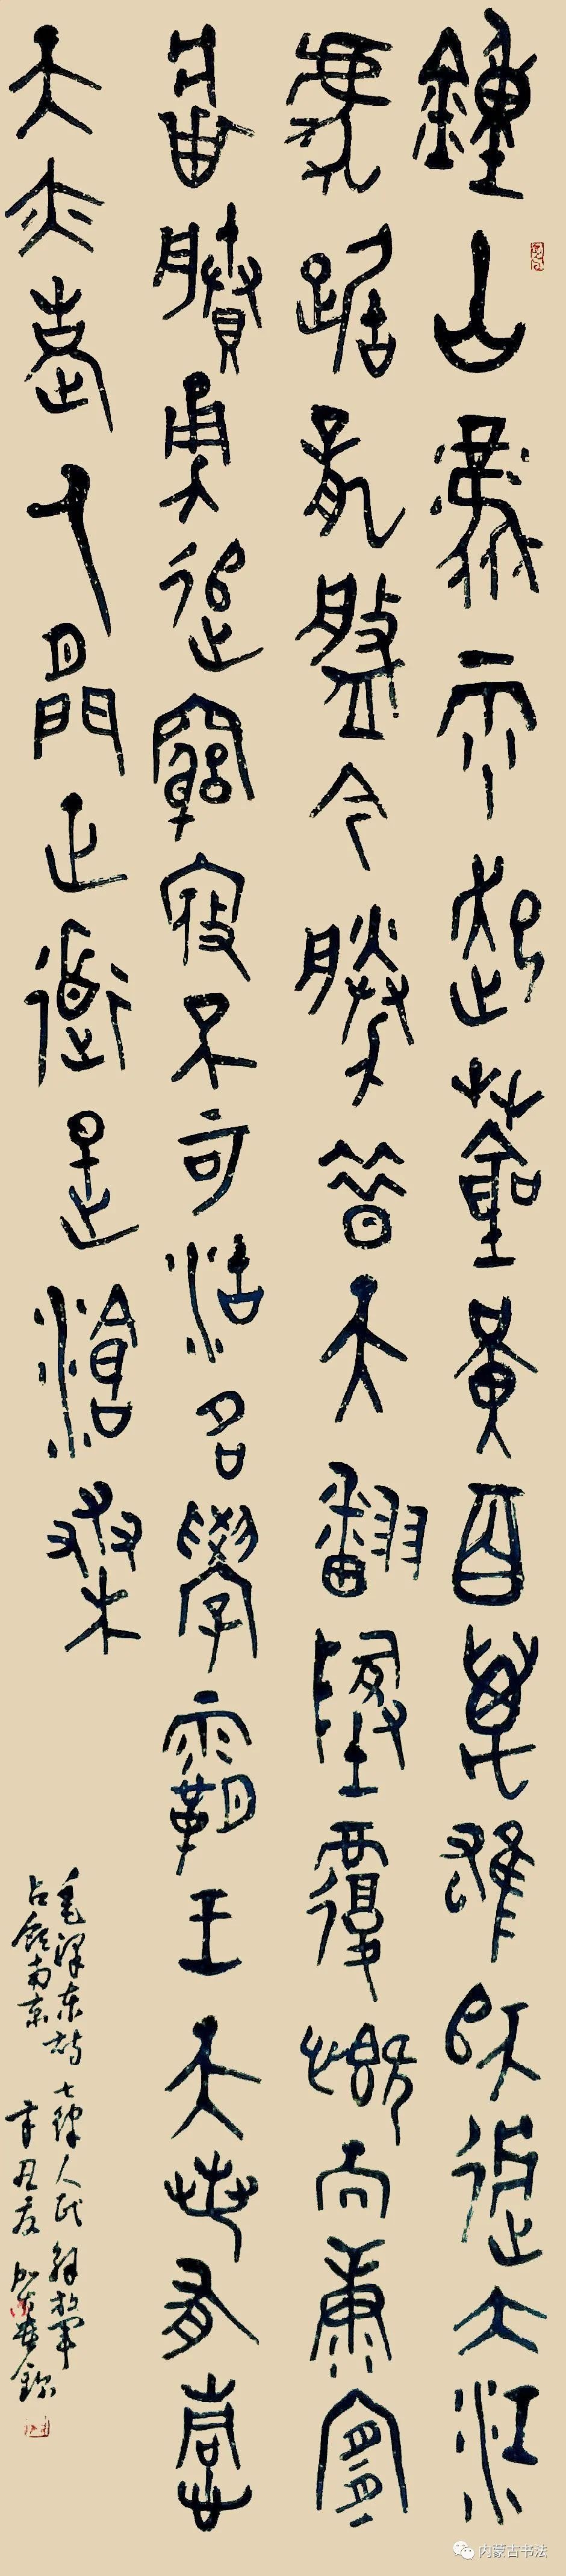 鍾山風雨起蒼黃百萬雄師過大江
虎踞龍盤今勝昔天翻地覆慨而慷
宜將賸勇追窮寇不可沽名學霸王天若有情
天亦老人間正道是滄桑
毛泽东诗七律人民解放军
占领南京 辛丑夏
内蒙古书法